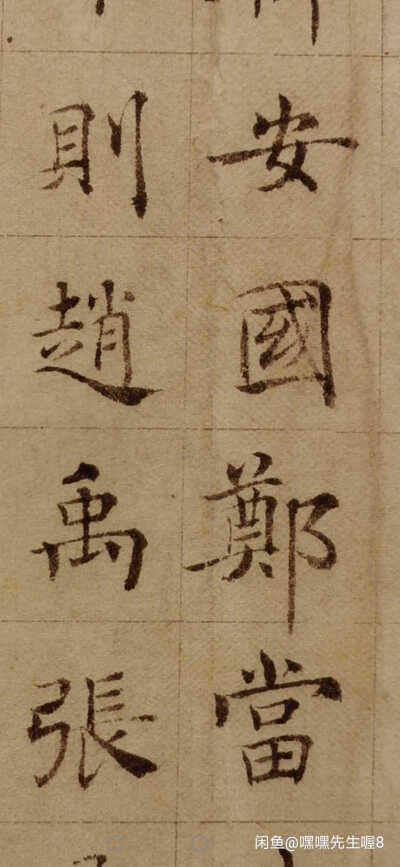 安國鄭當
則趙禹張
闲鱼@嘿嘿先生喔8